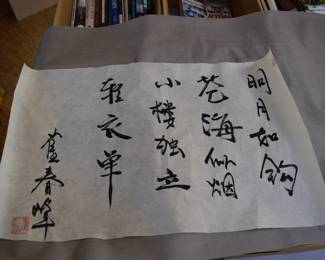 明月如钩
苍海似烟
小楼独立
轻衣单
春